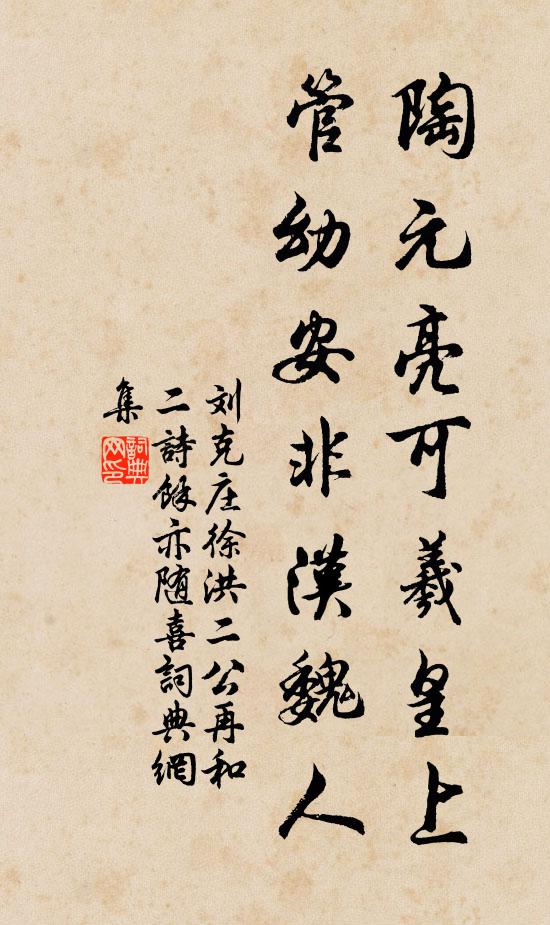 陶元亮可羲皇上
管幼安非漢魏人
刘克庄徐洪二公再和
二詩餘亦随喜詞典網
集
詞典網印